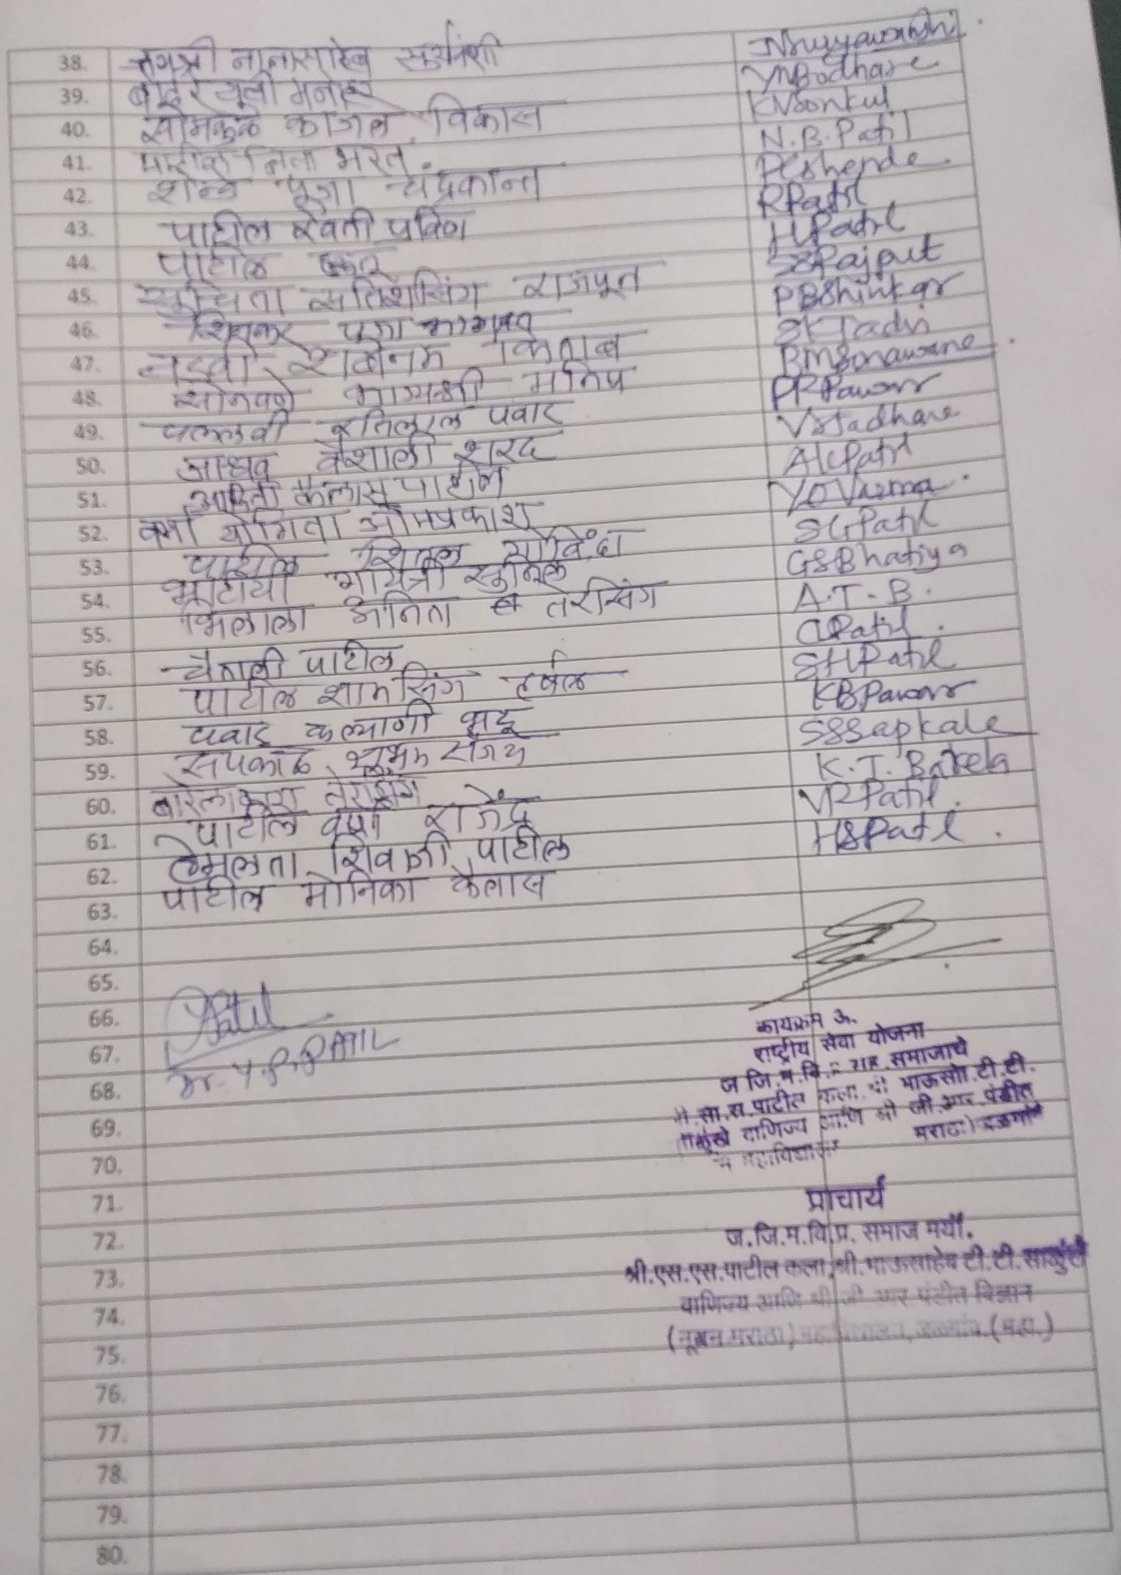 38. नानासाहेब सूर्यवंशी
39. मनोहर
40. सोनकुळ काजल विकास KVSonkul
41. पाटील निता भरत. N.B.Patil
42. शेन्डे पूजा चंद्रकान्त PCShende.
43. पाटील रेवती प्रविण RPatil
44. पाटील HPatil
45. सुचिता सतिशसिंग राजपूत SSRajput
46. शिनकर पूजा PBShinkar
47. तडवी शबनम किताब SKTadvi
48. सोनवणे भाग्यश्री मनिष BMSonawane.
49. पल्लवी रतिलाल पवार PRPawar
50. जाधव वैशाली शरद VSJadhav
51. आरती कैलास पाटील AKPatil
52. वर्मा योगिता ओमप्रकाश YOVarma.
53. पाटील शितल गोविंदा SGPatil
54. भाटीया गायत्री सुनिल GSBhatiya
55. भिलाला अनिता तेरसिंग A.T.B.
56. चैताली पाटील CPatil.
57. पाटील शामसिंग हर्षल SHPatil
58. पवार कल्याणी KBPawar
59. सपकाळे शुभम संजय SSSapkale
60. बारेला K.T. Barela
61. पाटील वर्षा राजेंद्र VRPatil.
62. हेमलता शिवाजी पाटील HSPatil.
63. पाटील मोनिका कैलास
64.
65.
66. Patil
67. Dr. Y.P.PATIL
68.
69.
70.
71.
72.
73.
74.
75.
76.
77.
78.
79.
80.
कार्यक्रम अ.
राष्ट्रीय सेवा योजना
ज जि.म.वि.प्र समाजाचे
सा.स.पाटील कला, श्री भाऊसो.टी.टी.
साळुंखे वाणिज्य आणि श्री जी.आर.पंडीत
मराठा) जळगाव
महाविद्यालय
प्राचार्य
ज.जि.म.वि.प्र. समाज मर्या.
श्री.एस.एस.पाटील कला,श्री.भाऊसाहेब टी.टी. साळुंखे
वाणिज्य आणि श्री जी आर पंडीत विज्ञान
(नूतन मराठा) महाविद्यालय, जळगांव.(महा.)